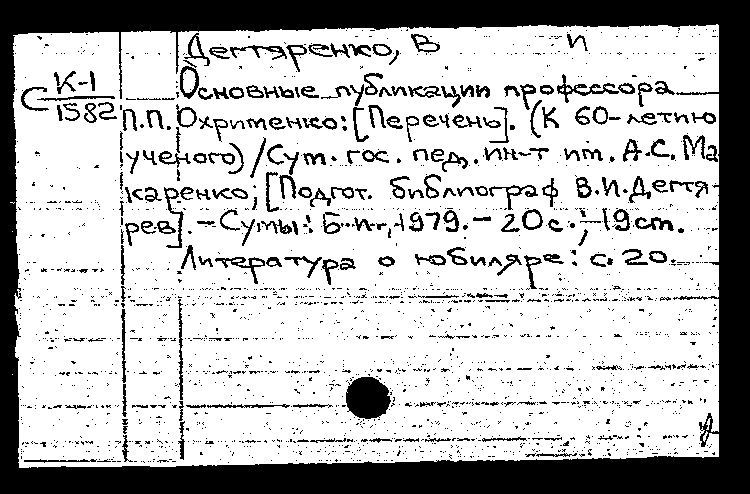 Дегтяренко, В И
С К-1
1582
Основные публикации профессора
П.П. Охрименко: [Перечень]. (К 60-летию
ученого) / Сум. гос. пед. ин-т им. А.С. Ма
каренко; [Подгот. библиограф В.И. Дегтя-
рев]. - Сумы: Б.и., 1979. - 20 с.; 19 cm.
Литература о юбиляре: с. 20.